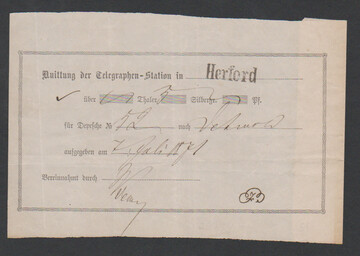 Quittung der Telegraphen-Station in Herford
über Thaler 5 Silbergr. Pf.
für Depesche № 52 nach Detmold
aufgegeben am 7. Juli 1871
Vereinnahmt durch